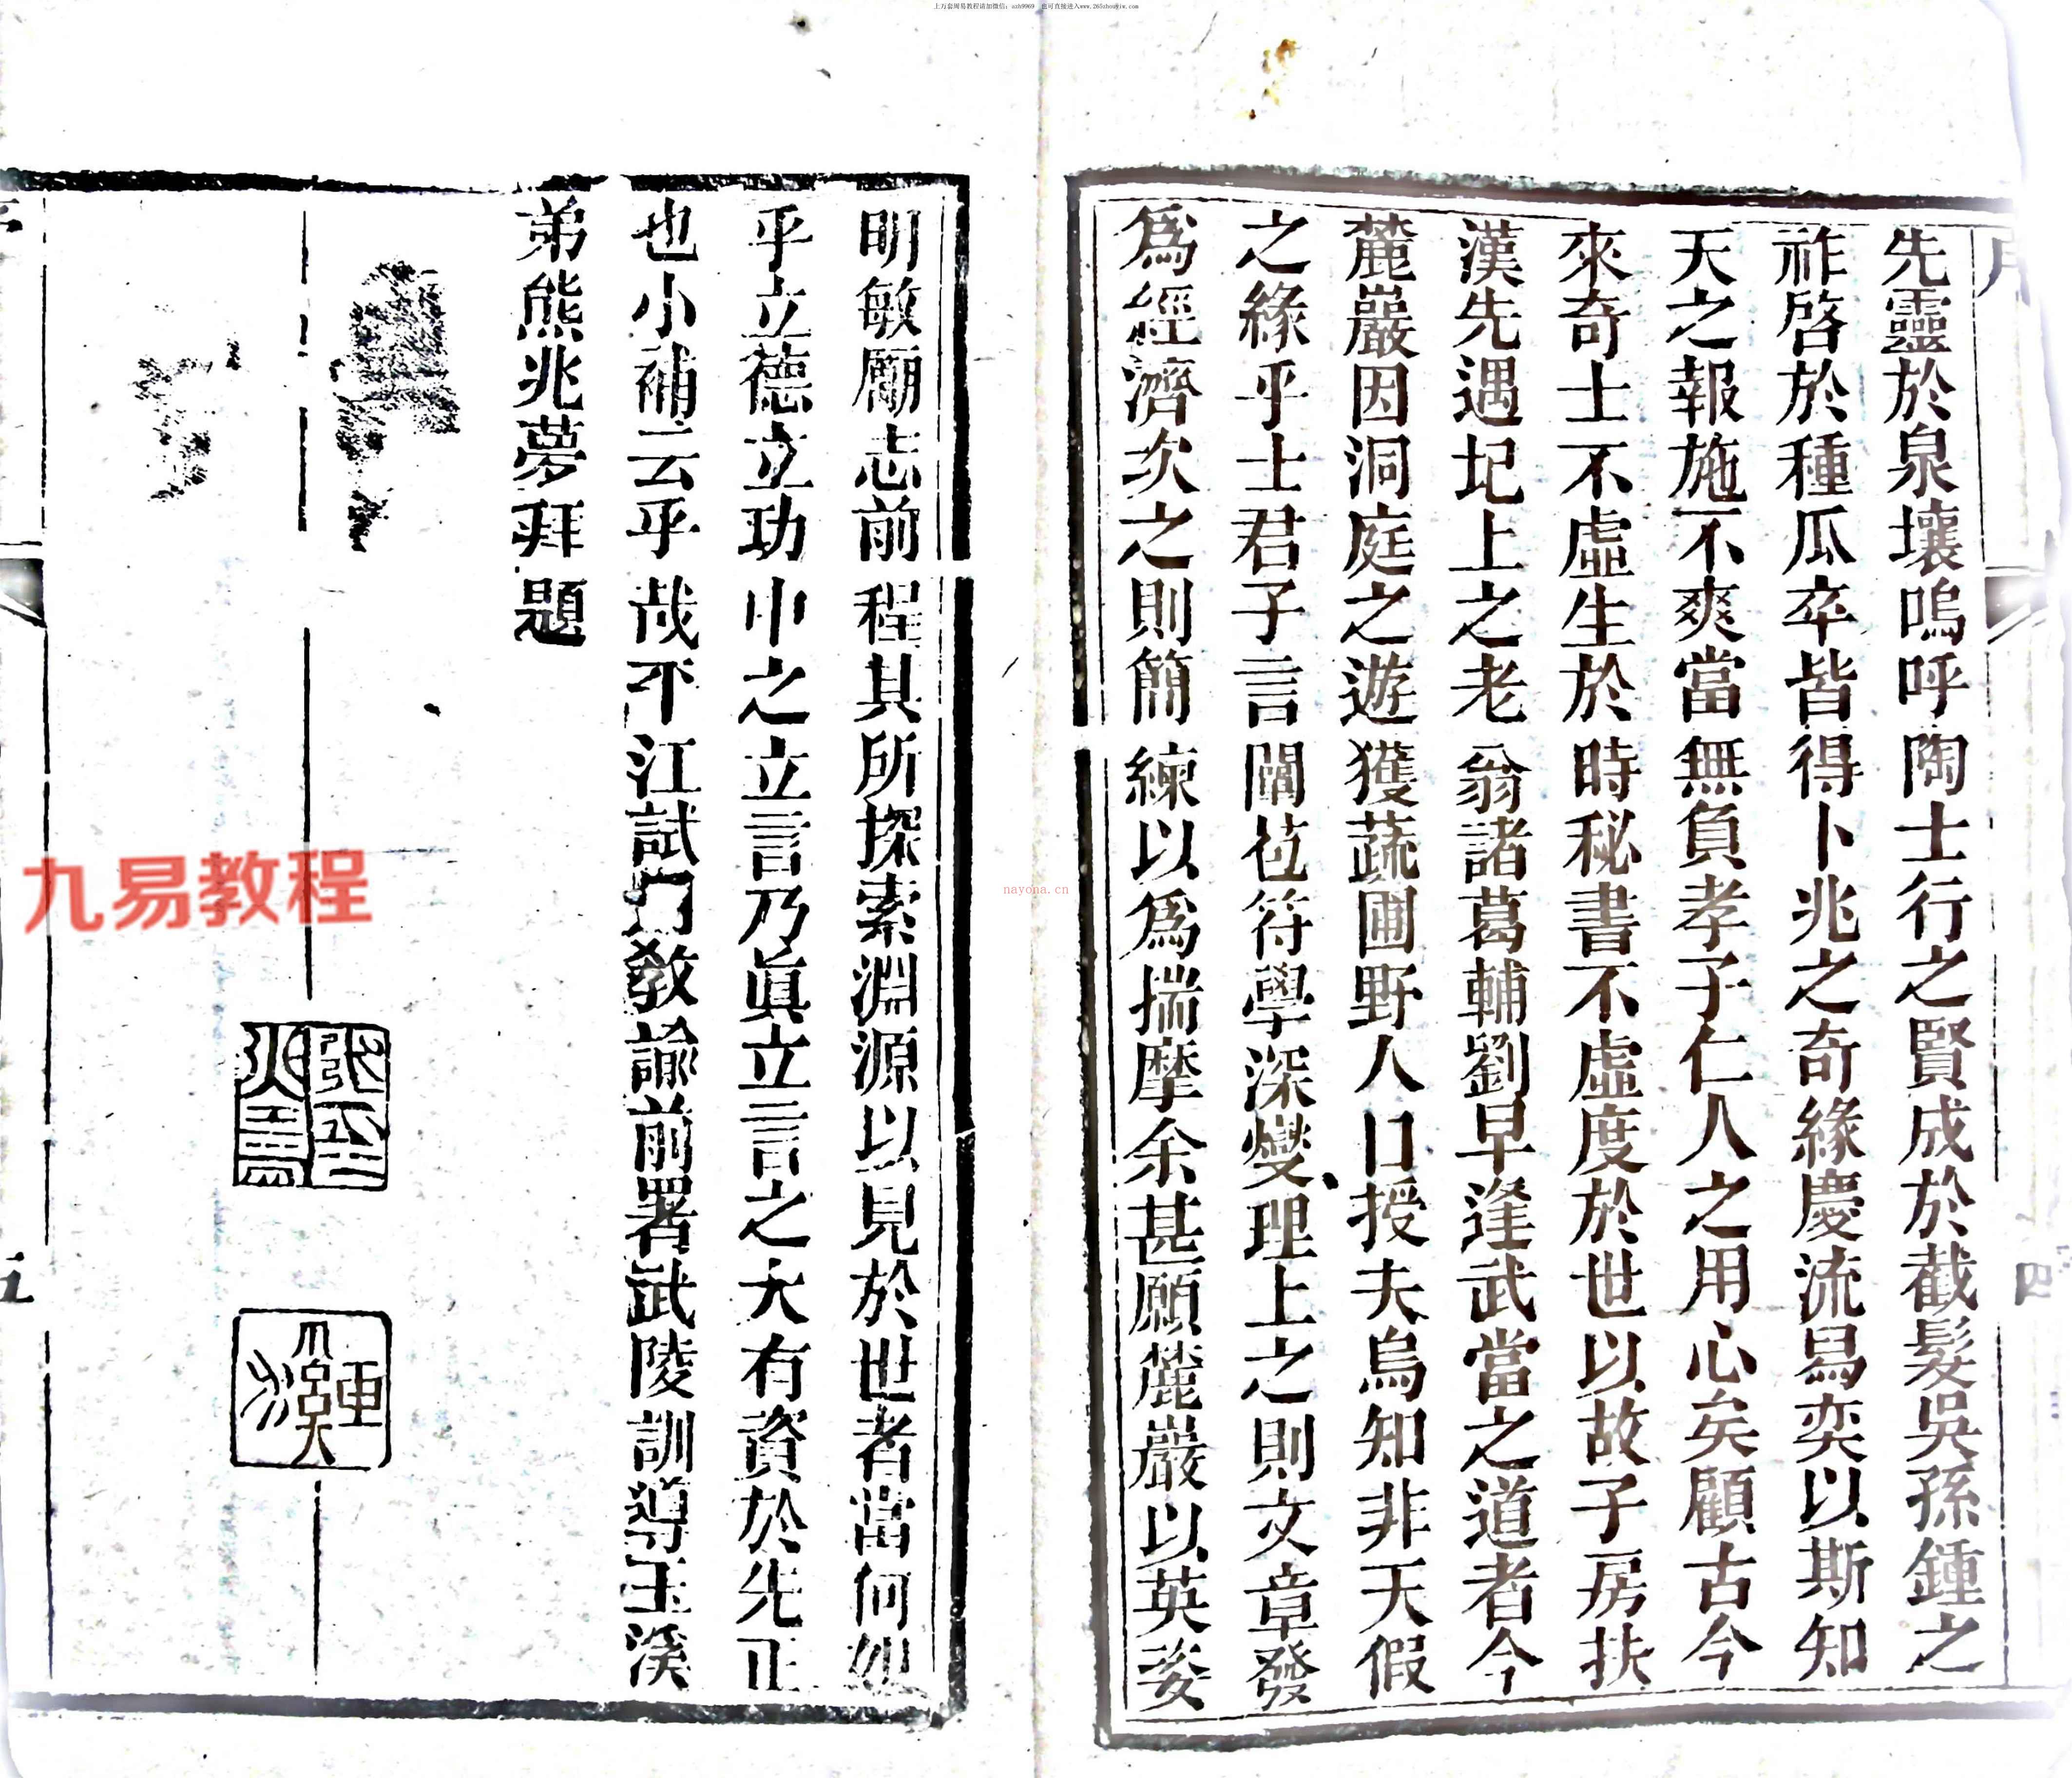 上万套周易教程请加微信：axh9969 也可直接进入www.265zhouyiw.com
先靈於泉壤嗚呼陶士行之賢成於截髮吳孫鍾之
祚啓於種瓜卒皆得卜兆之奇緣慶流易奕以斯知
天之報施不爽當無負孝子仁人之用心矣顧古今
來奇士不虛生於時秘書不虛度於世以故子房扶
漢先遇圯上之老翁諸葛輔劉早逢武當之道者今
麓巖因洞庭之遊獲蔬圃野人口授夫烏知非天假
之緣乎士君子言闡苞符學深燮理上之則文章發
爲經濟次之則簡練以爲揣摩余甚願麓巖以英姿
四
明敏勵志前程其所探索淵源以見於世者當何如
乎立德立功中之立言乃眞立言之大有資於先正
也小補云乎哉平江試用教諭前署武陵訓導玉溪
弟熊兆夢拜題
九易教程
nayona.cn